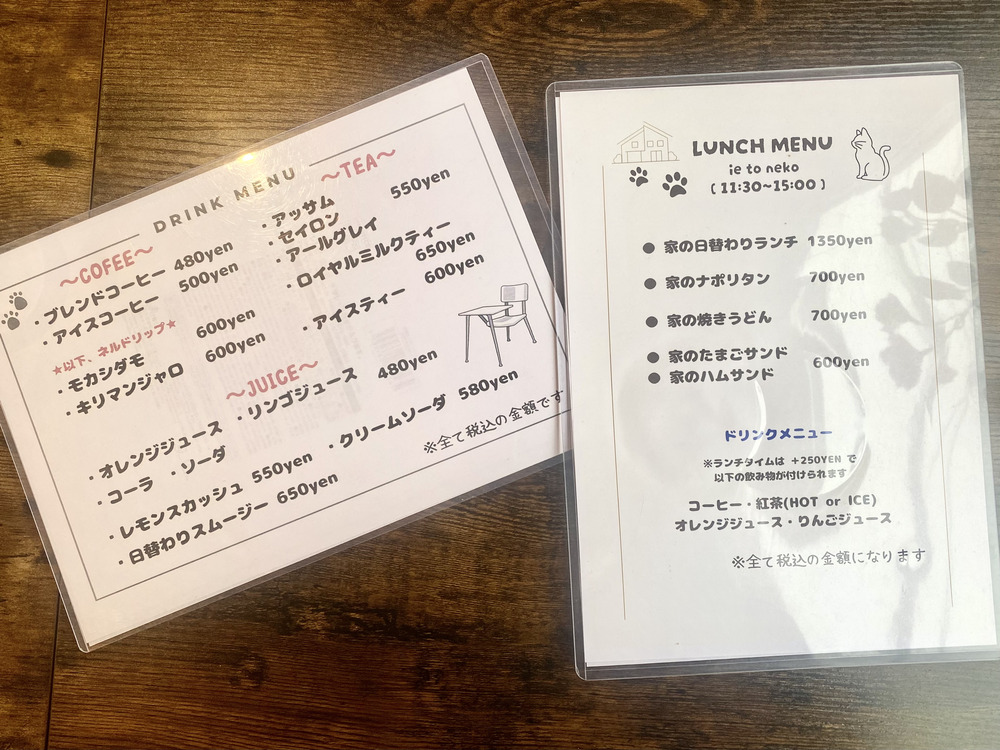 DRINK MENU
〜COFEE〜
・ブレンドコーヒー 480yen
・アイスコーヒー 500yen
★以下、ネルドリップ★
・モカシダモ 600yen
・キリマンジャロ 600yen
〜TEA〜
・アッサム 550yen
・セイロン
・アールグレイ
・ロイヤルミルクティー
650yen
・アイスティー 600yen
〜JUICE〜
・オレンジジュース ・リンゴジュース 480yen
・コーラ ・ソーダ
・レモンスカッシュ 550yen ・クリームソーダ 580yen
・日替わりスムージー 650yen
※全て税込の金額です
LUNCH MENU
ie to neko
( 11:30~15:00 )
● 家の日替わりランチ 1350yen
● 家のナポリタン 700yen
● 家の焼きうどん 700yen
● 家のたまごサンド
● 家のハムサンド 600yen
ドリンクメニュー
※ランチタイムは +250YEN で
以下の飲み物が付けられます
コーヒー・紅茶(HOT or ICE)
オレンジジュース・りんごジュース
※全て税込の金額になります